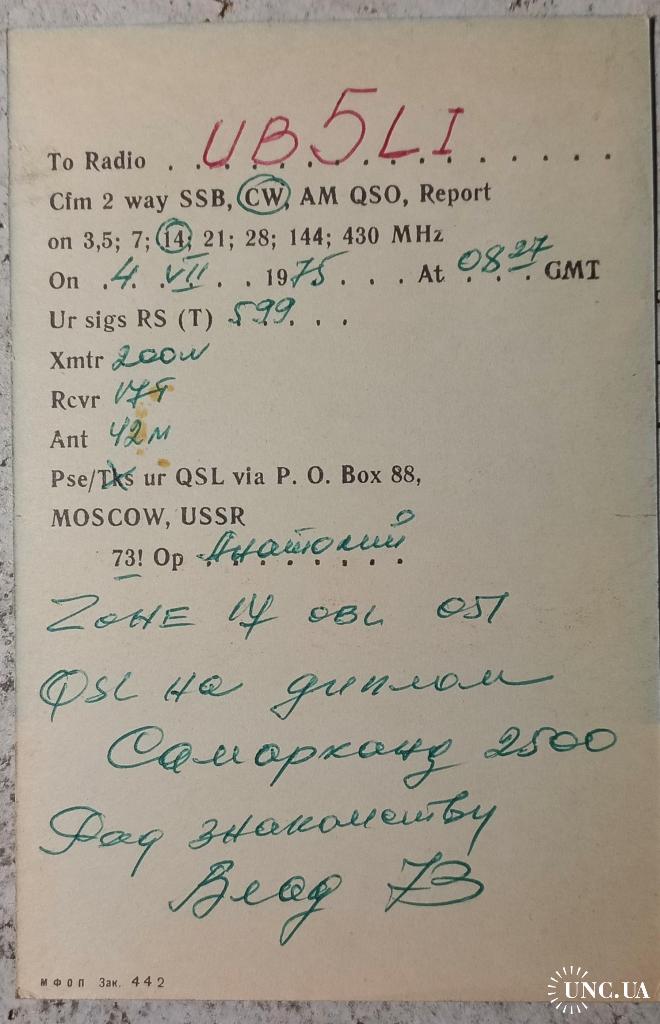 To Radio UB5LI
Cfm 2 way SSB, CW, AM QSO, Report
on 3,5; 7; 14; 21; 28; 144; 430 MHz
On 4 VII 1975 At 0827 GMT
Ur sigs RS (T) 599
Xmtr 200W
Rcvr
Ant 42м
Pse/Tks ur QSL via P. O. Box 88,
MOSCOW, USSR
73! Op Анатолий
ZONE 17 OBL 051
QSL на диплом
Самарканд 2500
Рад знакомству
Влад 73
МФОП Зак. 442
UNC.UA